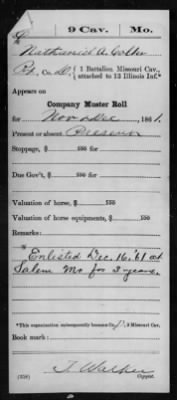 9 Cav. Mo.
Nathaniel A. Colter
Pvt, Co. D, 1 Battalion Missouri Cav.,
attached to 13 Illinois Inf.*
Appears on
Company Muster Roll
for Nov & Dec, 1861.
Present or absent Present
Stoppage, $ 100
Due Gov't, $ 100
Valuation of horse, $ 100
Valuation of horse equipments, $ 100
Remarks:
Enlisted Dec. 16, '61 at
Salem Mo for 3 years.
*This organization subsequently became Co. , 9 Missouri Cav.
Book mark:
T Walker
(358) Copyist.